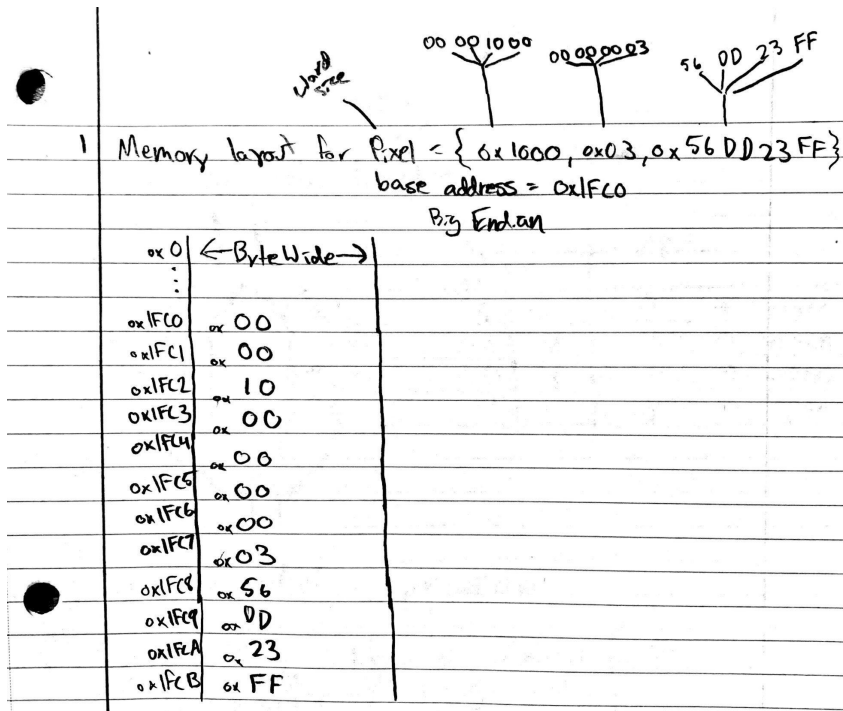 00 00 10 00
00 00 00 03
56 DD 23 FF
Word size
1 Memory layout for Pixel = { 0x1000, 0x03, 0x56DD23FF}
base address = 0x1FC0
Big Endian
0x0 <-Byte Wide->
0x1FC0 0x 00
0x1FC1 0x 00
0x1FC2 0x 10
0x1FC3 0x 00
0x1FC4 0x 00
0x1FC5 0x 00
0x1FC6 0x 00
0x1FC7 0x 03
0x1FC8 0x 56
0x1FC9 0x DD
0x1FCA 0x 23
0x1FCB 0x FF